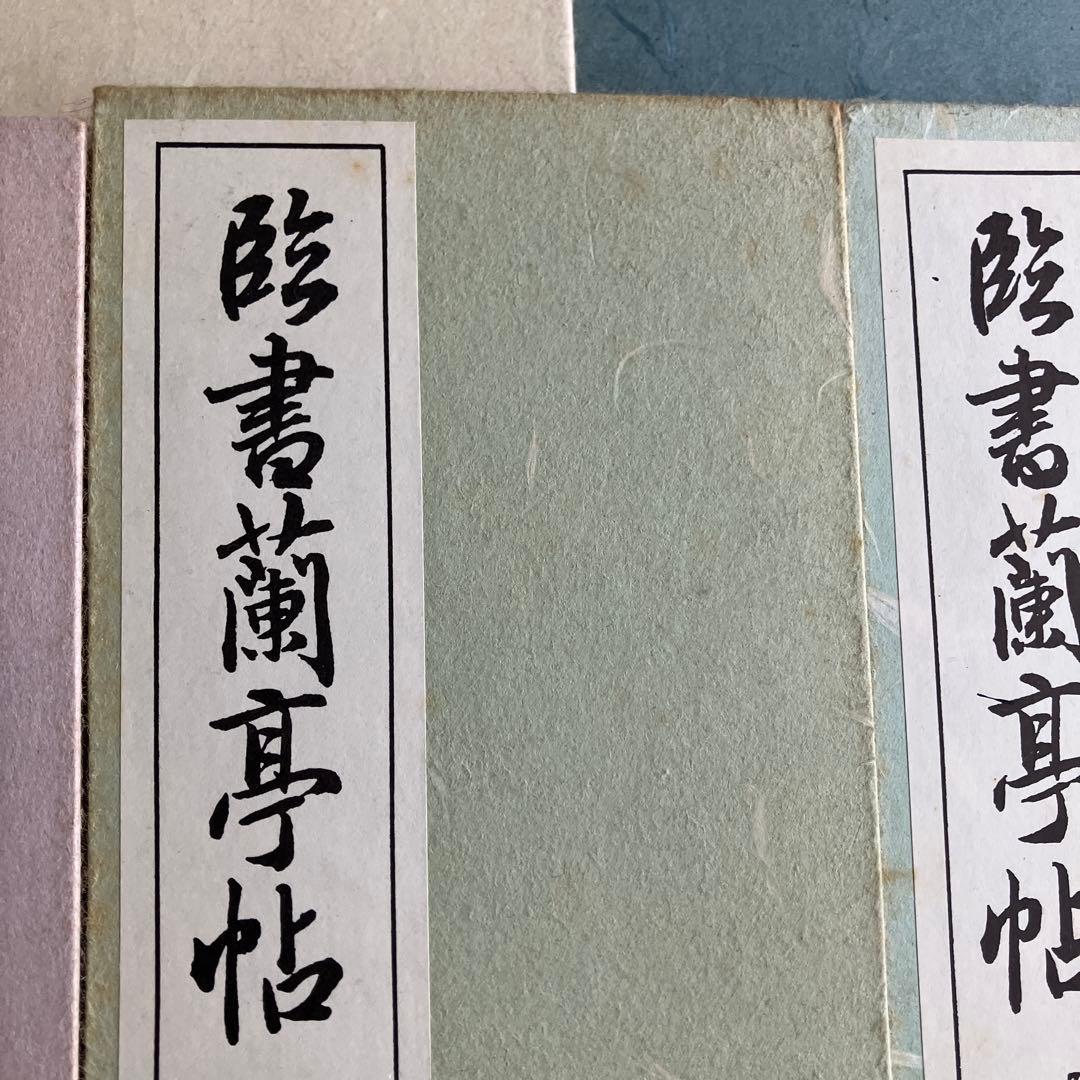 臨書蘭亭帖
臨書蘭亭帖